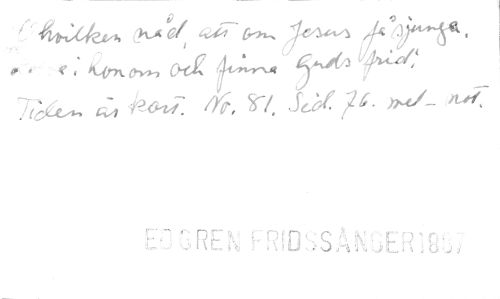 O hvilken nåd, att om Jesus få sjunga,
i honom och finna Guds frid!
Tiden är kort. No. 81. Sid. 76. mel-not.
EDGREN FRIDSSÅNGER 1897